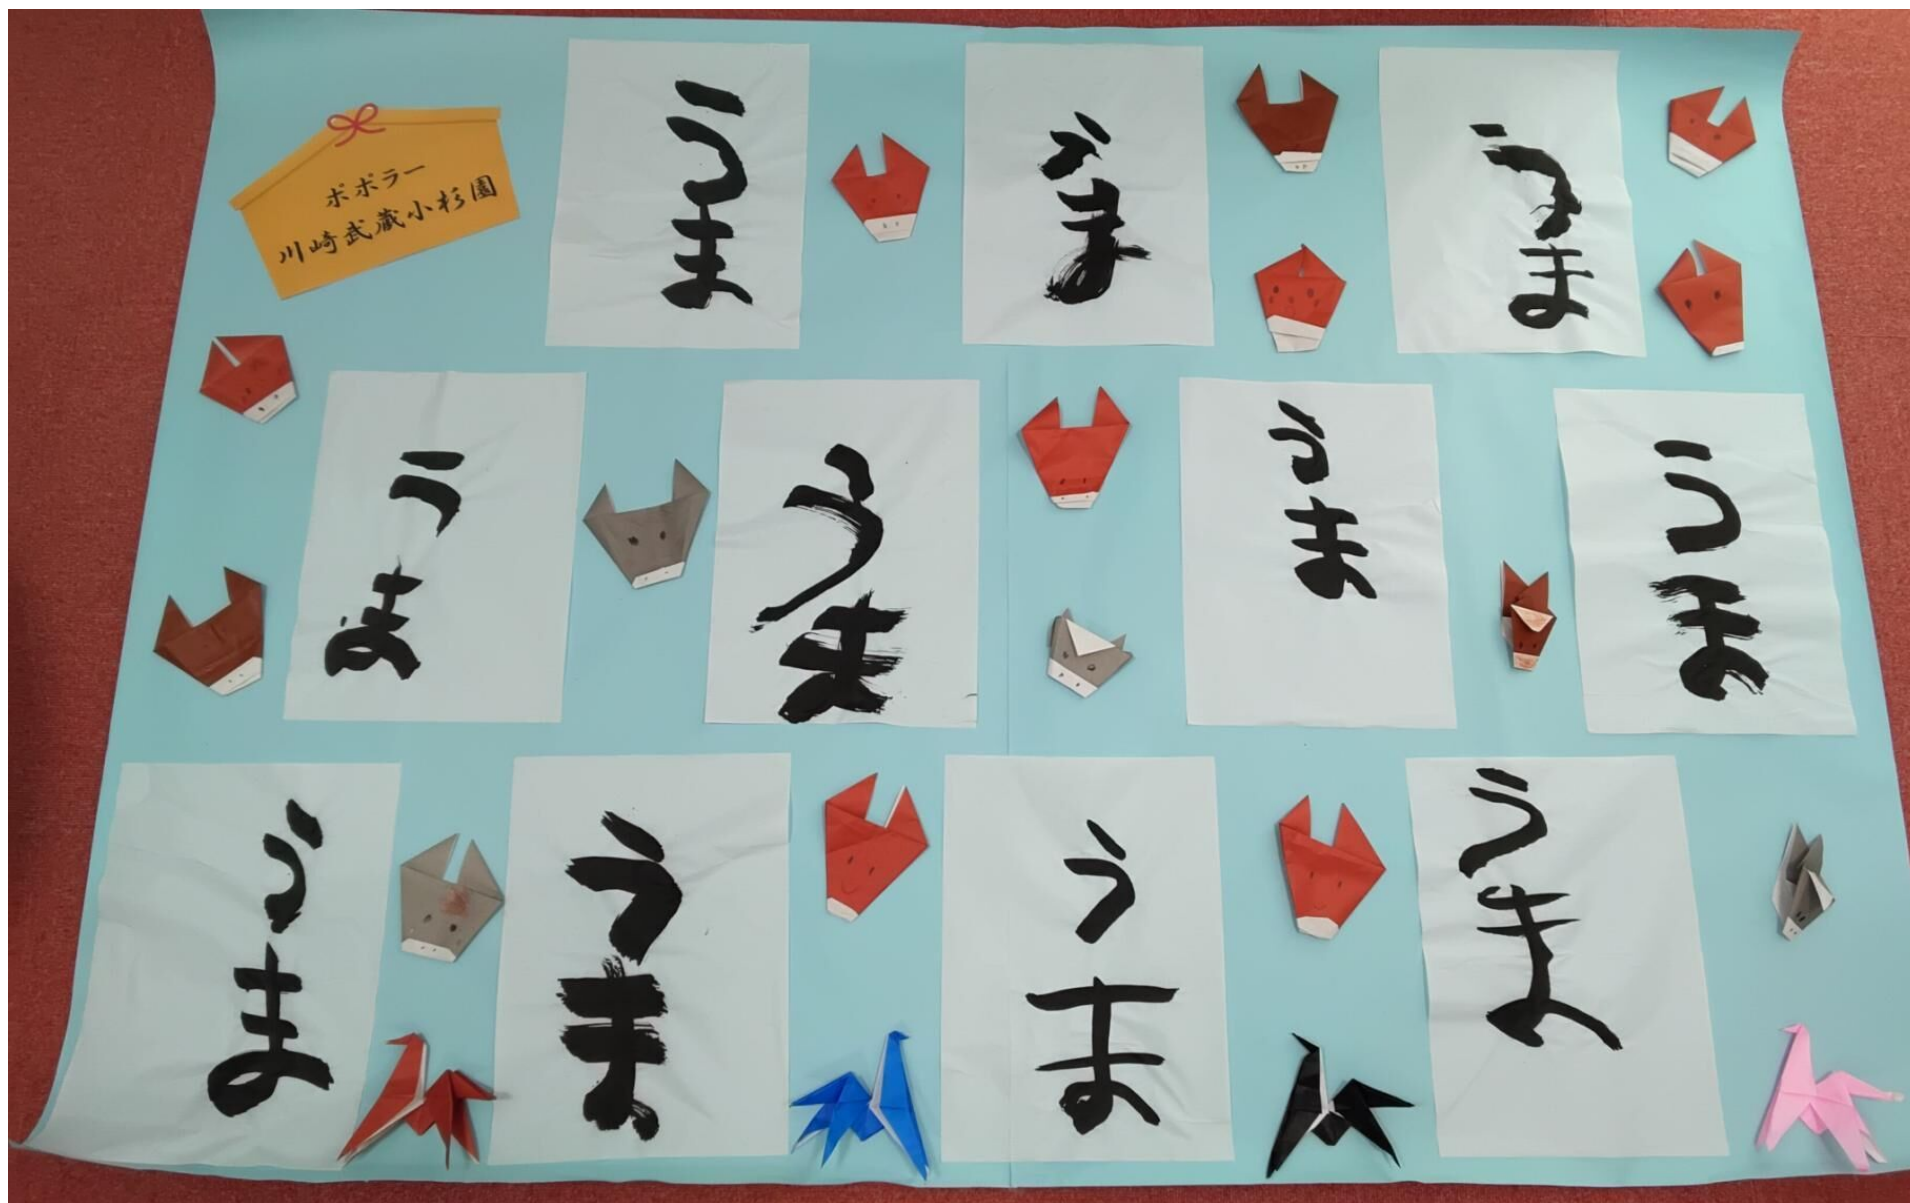 ポポラー
川崎武蔵小杉園
うま
うま
うま
うま
うま
うま
うま
うま
うま
うま
うま